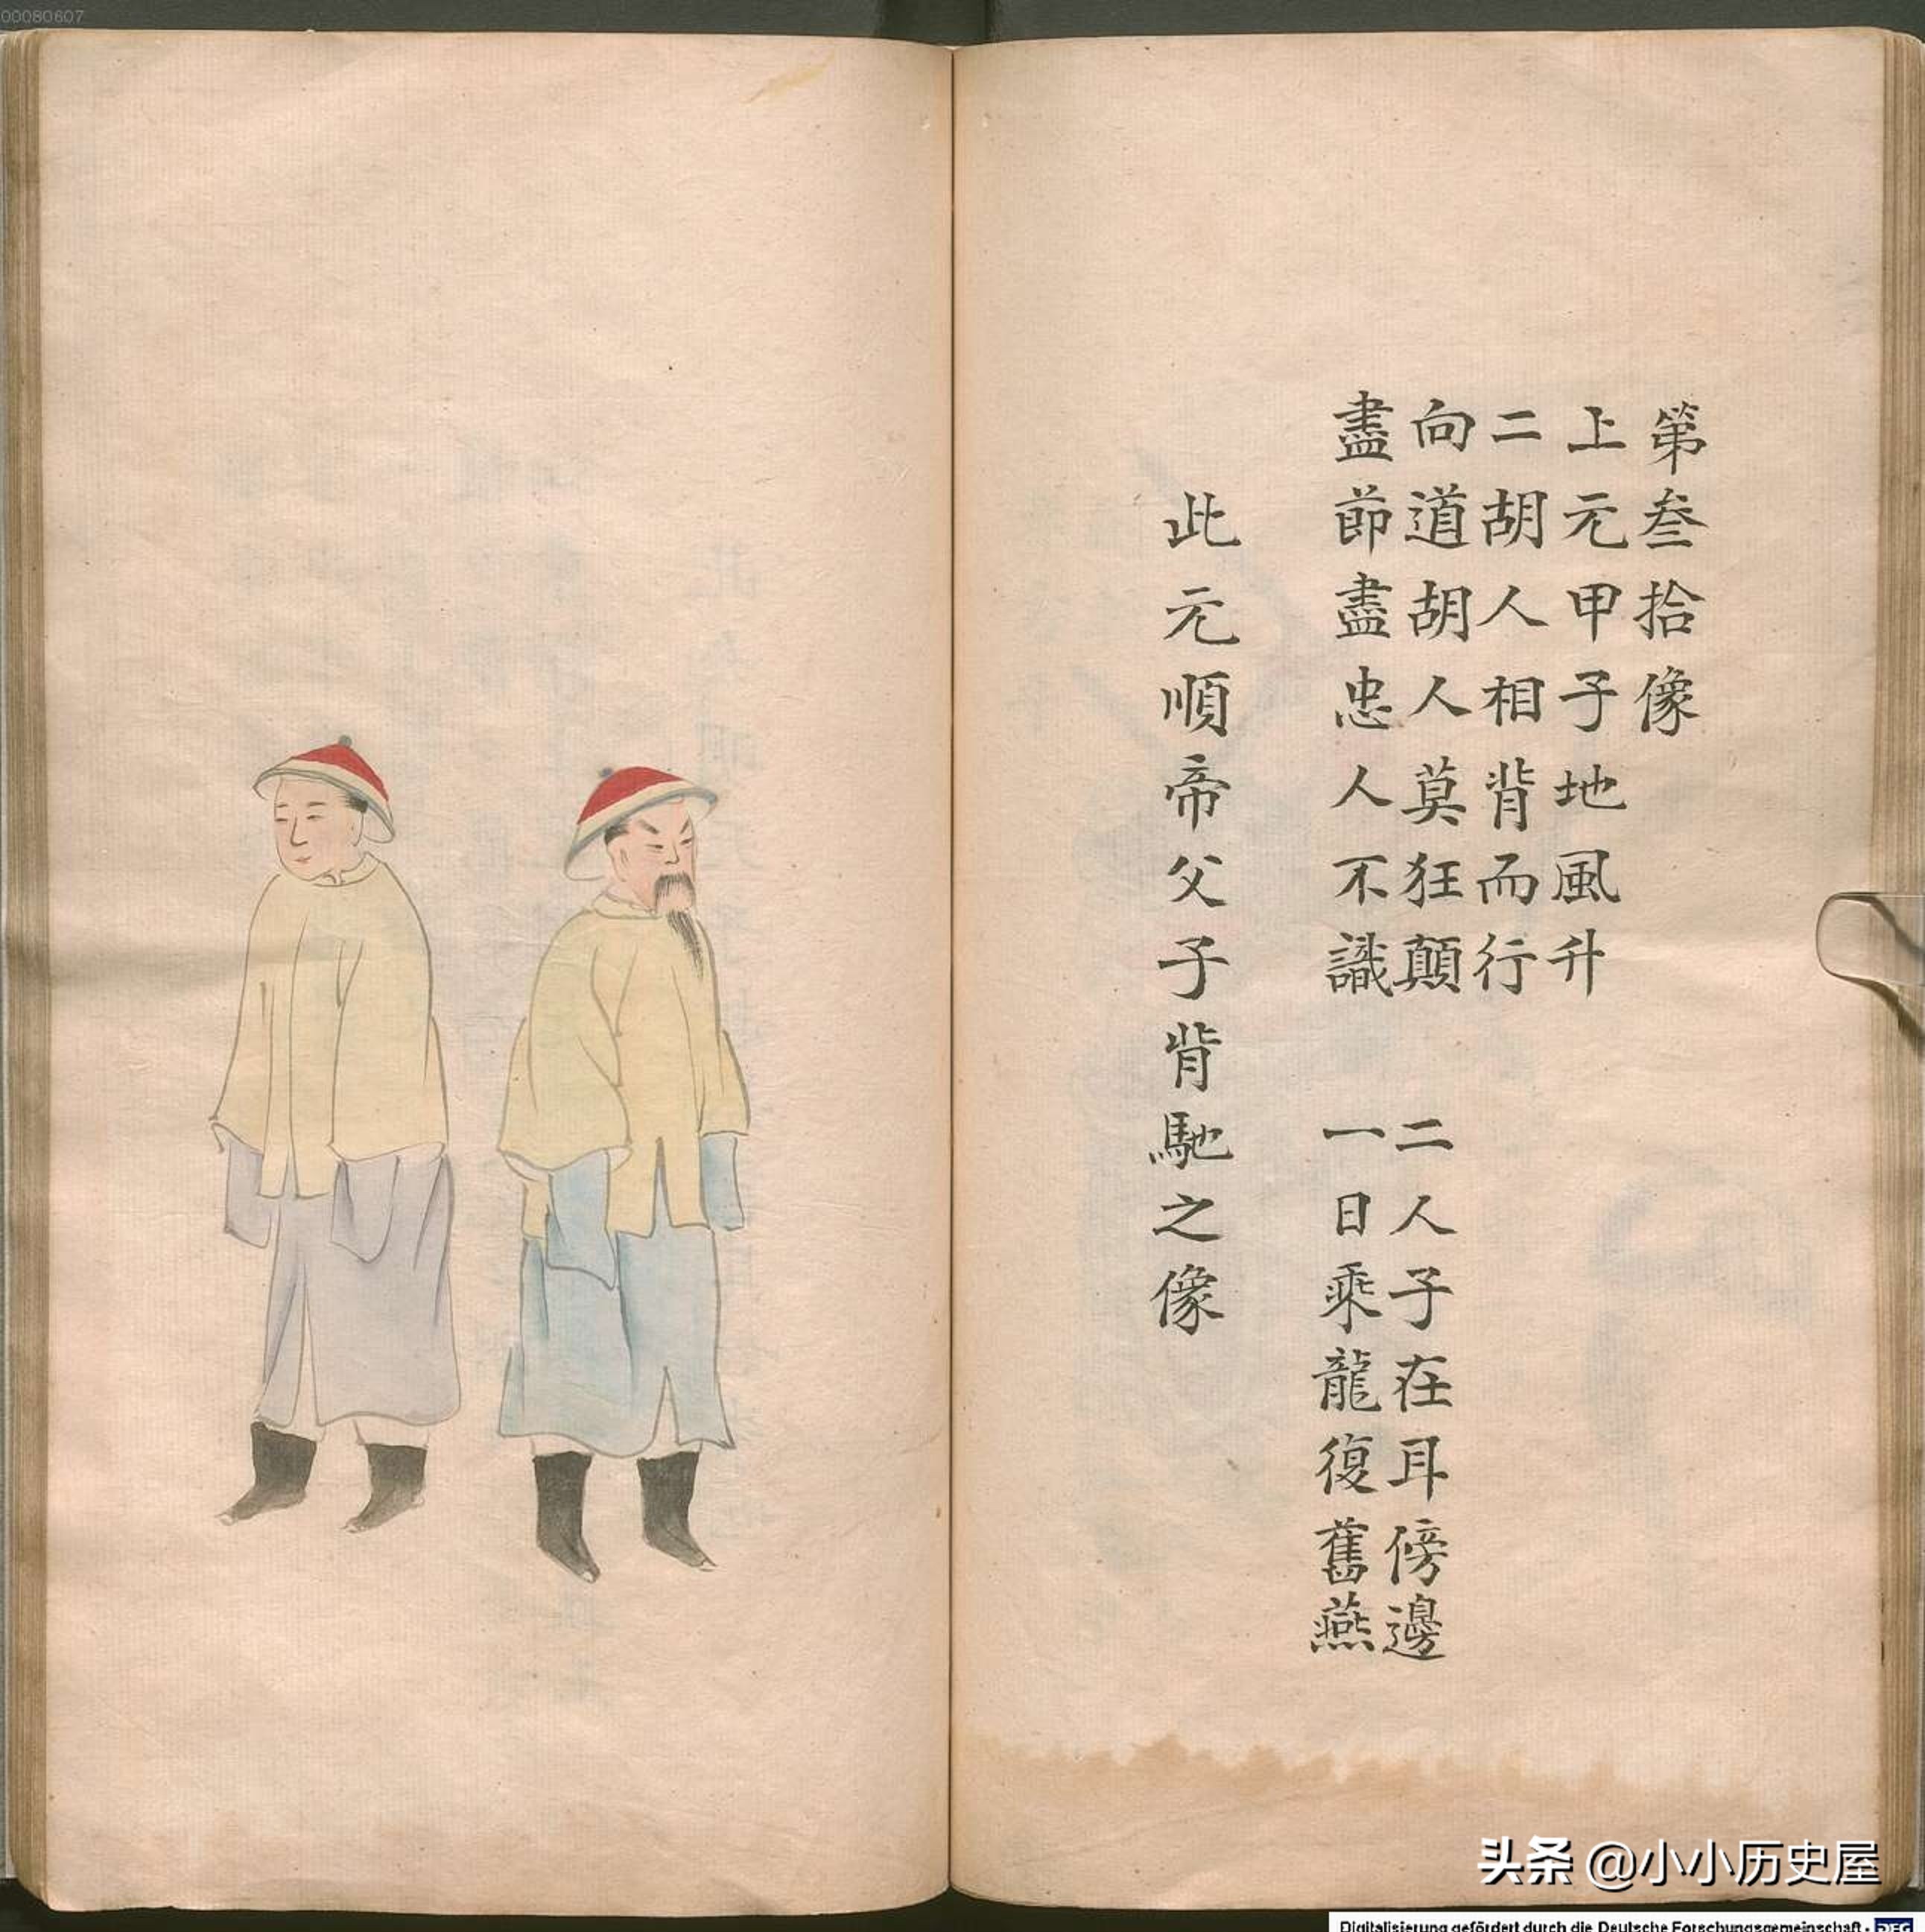 00080607
第叁拾像
上元甲子地風升
二胡人相背而行
向道胡人莫狂顛 二人子在耳傍邊
盡節盡忠人不識 一日乘龍復舊燕
此元順帝父子背馳之像
头条 @小小历史屋
Digitalisierung gefördert durch die Deutsche Forschungsgemeinschaft - DFG